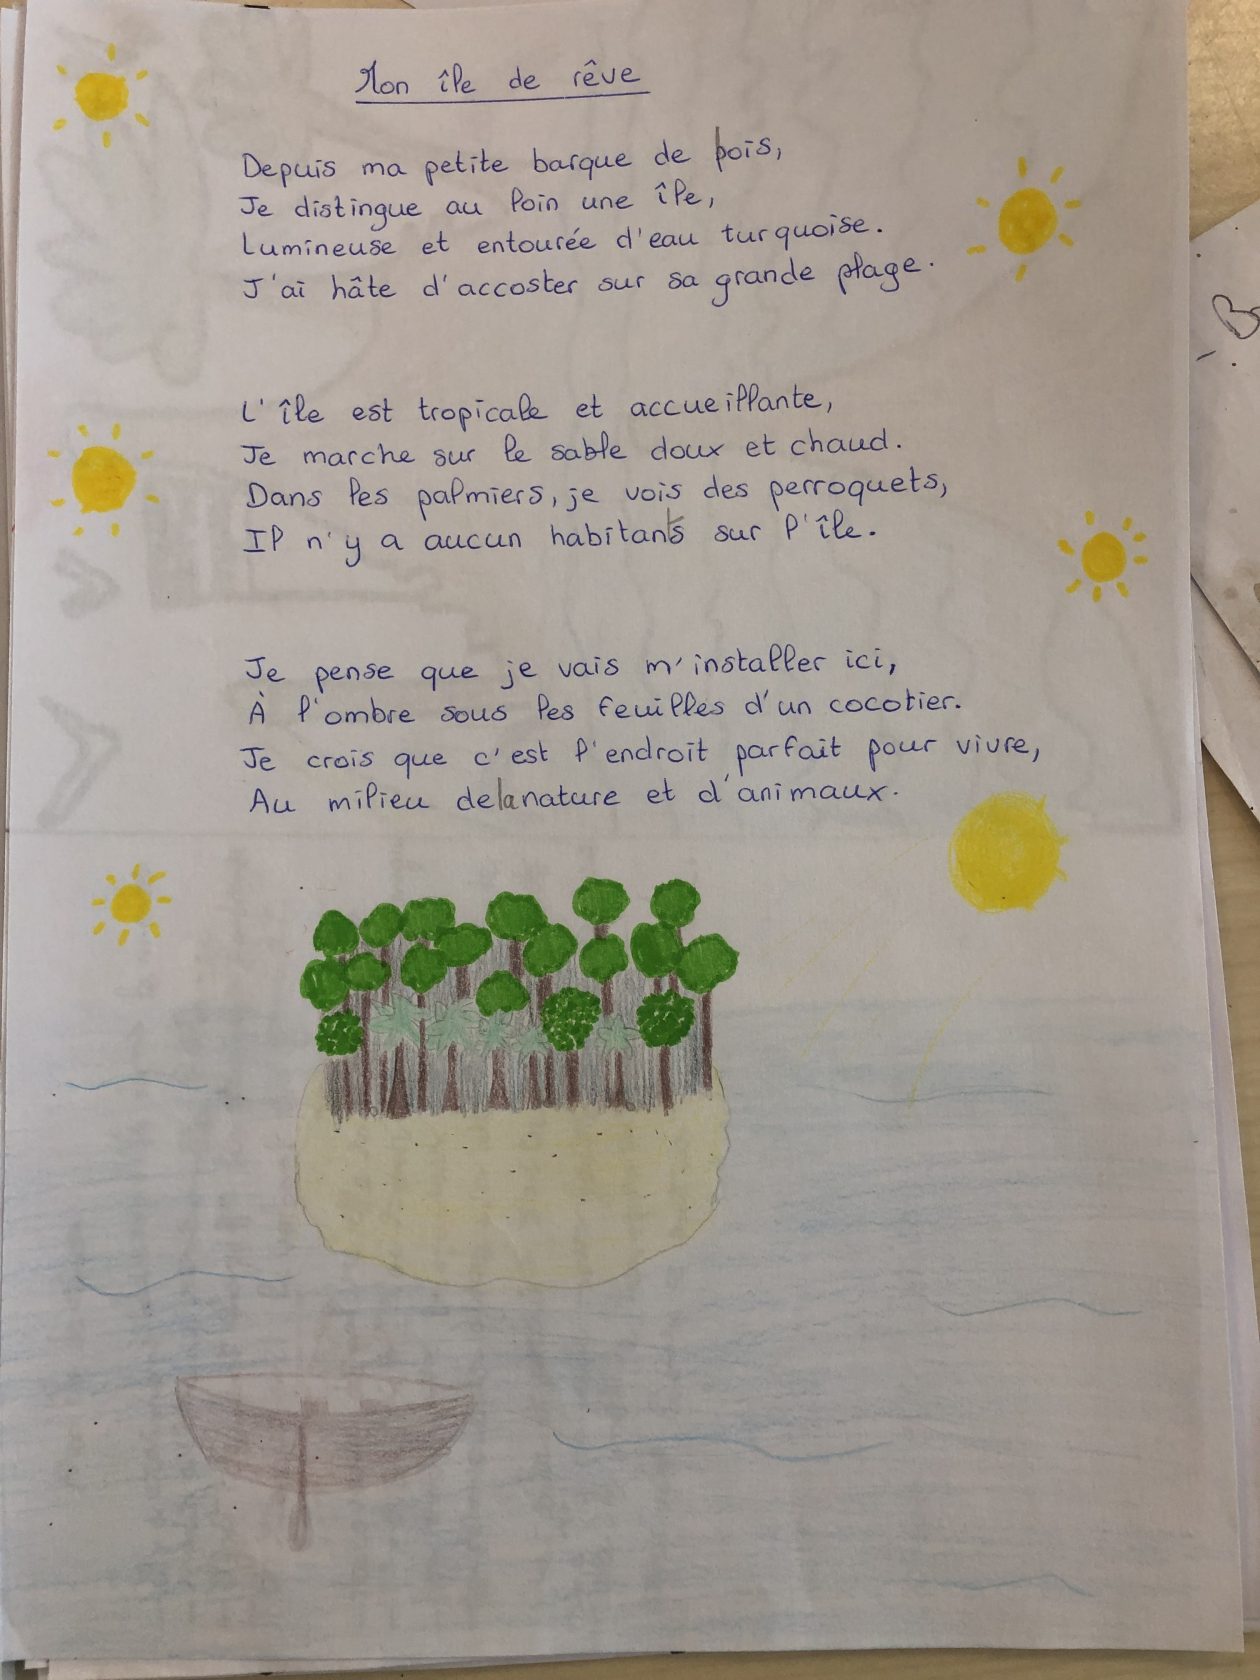 Mon île de rêve
Depuis ma petite barque de bois,
Je distingue au loin une île,
Lumineuse et entourée d'eau turquoise.
J'ai hâte d'accoster sur sa grande plage.
L'île est tropicale et accueillante,
Je marche sur le sable doux et chaud.
Dans les palmiers, je vois des perroquets,
Il n'y a aucun habitants sur l'île.
Je pense que je vais m'installer ici,
À l'ombre sous les feuilles d'un cocotier.
Je crois que c'est l'endroit parfait pour vivre,
Au milieu de la nature et d'animaux.